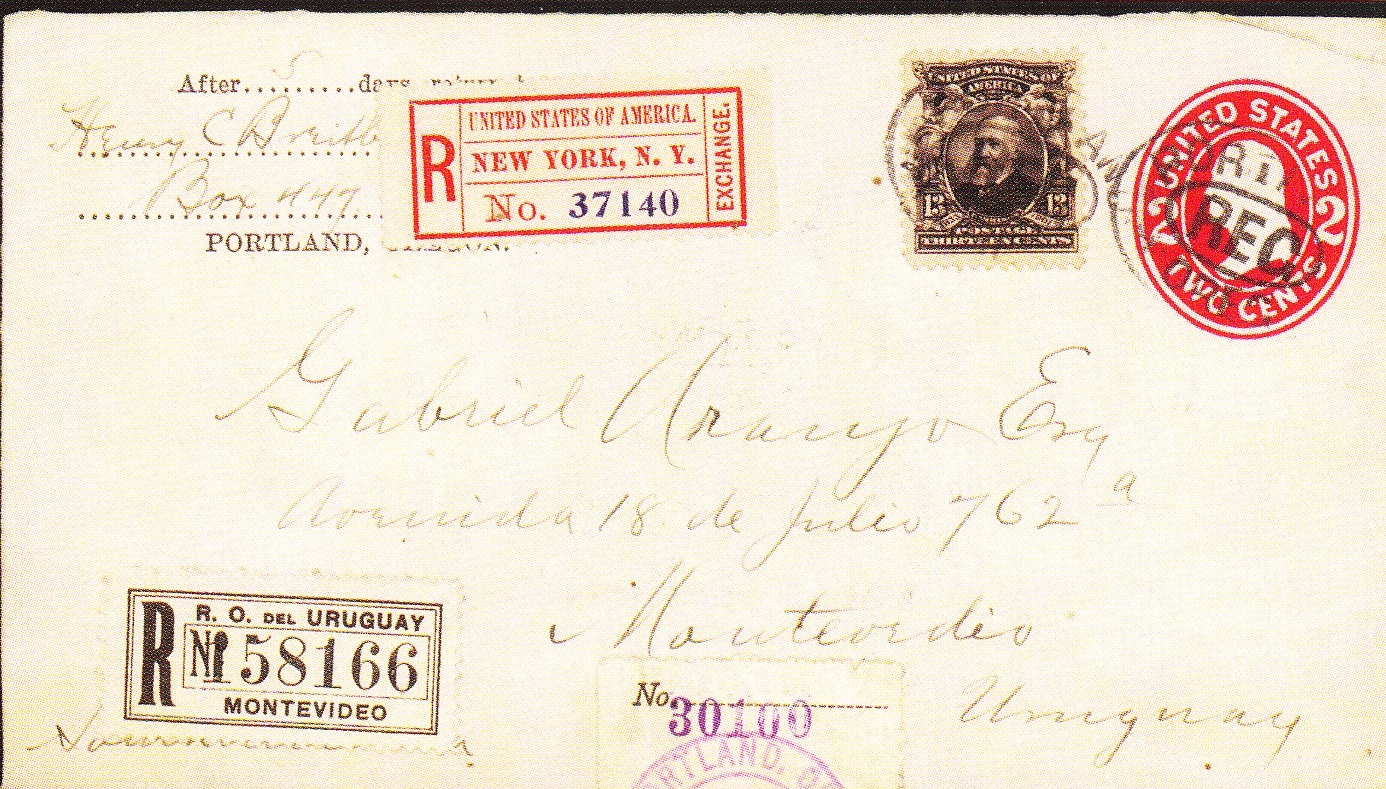 After 5 days return
Henry C
Box 447
PORTLAND, OREGON.
R
UNITED STATES OF AMERICA.
NEW YORK, N. Y.
No. 37140
EXCHANGE.
UNITED STATES OF
AMERICA
13 13
POSTAGE
THIRTEEN CENTS
UNITED STATES
2 2
TWO CENTS
REG
Gabriel Araujo Esq
Avenida 18 de Julio 762 a
Montevideo
Uruguay
R
R. O. DEL URUGUAY
No 58166
MONTEVIDEO
No. 30100
PORTLAND, OR